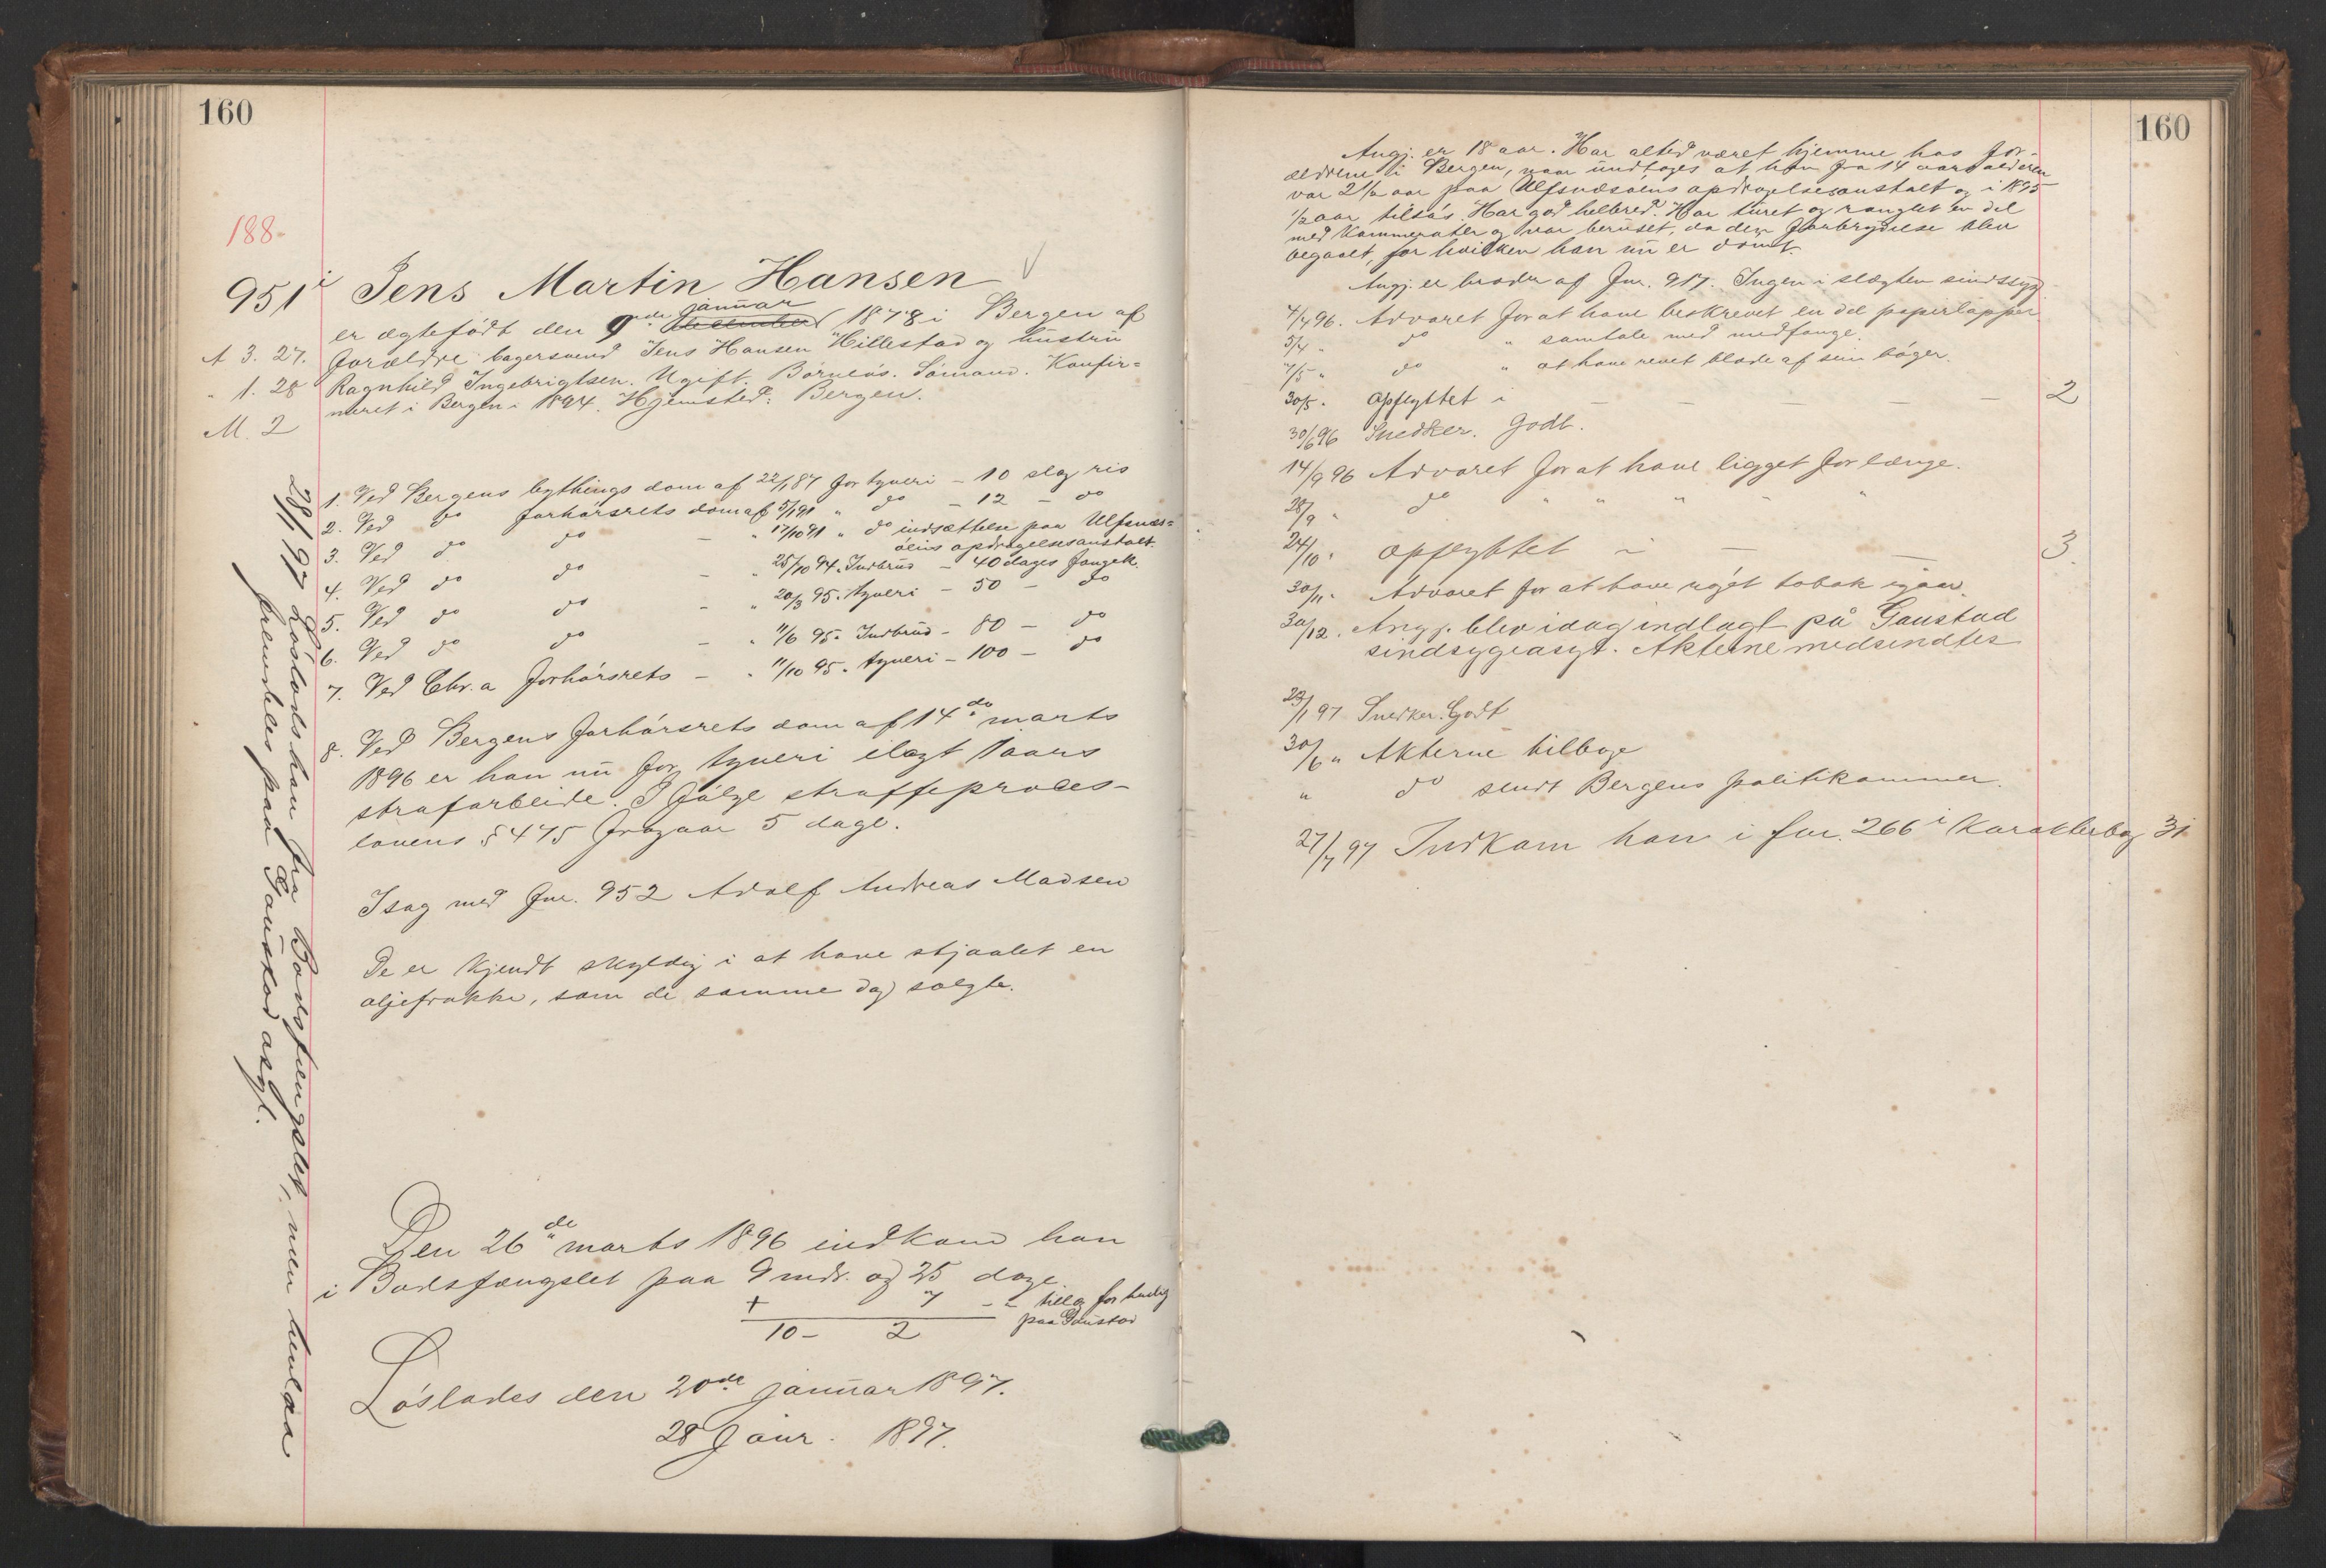 160
188.
951 i Jens Martin Hansen
januar
er ægtefödt den 9de december 1878 i Bergen af
A 3. 27. forældre bagersvend Jens Hansen Hillestad og hustru
" 1. 28 Ragnhild Ingebrigtsen. Ugift. Barnlös. Sömand. Konfir=
M. 2 meret i Bergen i 1894. Hjemsted: Bergen.
1. Ved Bergens bythings dom af 22/1 87 for tyveri - 10 slag ris
2. Ved do forhörsrets dom af 5/1 91 " do - 12 - do
3. Ved do do - " 17/10 91 " do indsættelse paa Ulfsnæs=
öens opdragelsesanstalt.
4. Ved do do - " 25/10 94. Indbrud - 40 dages fængsl.
5. Ved do do - " 20/3 95. tyveri - 50 - do
6. Ved do do - " 11/6 95. Indbrud - 80 - do
7. Ved Chr.a forhörsrets - " 11/10 95. tyveri - 100 - do
8. Ved Bergens forhörsrets dom af 14de marts
1896 er han nu for tyveri ilagt 1 aars
strafarbeide. I fölge straffeproces-
lovens § 475 fragaar 5 dage.
I sag med fnr. 952 Adolf Andreas Madsen
De er kjendt skyldig i at have stjaalet en
oljefrakke, som de samme dag solgte.
Den 26de marts 1896 indkom han
i Bodsfængslet paa 9 mdr. og 25 dage
+ 7 - " tillæg for
paa Gaustad
10 - 2
Löslades den 20de januar 1897.
28 Jaur. 1897.
28/1 97 Löslods han fra Bodsfængslet, men
paa Gaustad asyl.
160
Angj. er 18 aar. Har altid været hjemme hos for-
ældrene i Bergen, naar undtages at han fra 14 aars alderen
var 2 1/2 aar paa Ulfsnæsöens opdragelsesanstalt og i 1895
1/2 aar tilsös. Har god helbred. Har turet og ranglet en del
med Kammerater og var beruset, da den forbrydelse blev
begaaet, for hvilken han nu er dömt.
Angj. er broder af fnr. 917. Ingen i slægten sindssyg
4/4 96. Advaret for at have beskrevet en del papirlapper
5/4 " do " samtale med medfange.
7/5 " do " at have revet blade af sine böger.
30/5 . Opflyttet i — — — — 2
30/6 96 Snedker. Godt.
14/9 96 Advaret for at have ligget for længe.
28/9 " do " " " " "
24/10 " opflyttet i — — 3.
30/11 " Advaret for at have rögt tobak igaar.
30/12 . Angj. blev idag indlagt på Gaustad
sindsygeasyl. Akterne medsendtes
23/1 97 Snedker. Godt
30/6 " Akterne tilbage
" do sendt Bergens politikammer.
27/7 97 Indkom han i fnr. 266 i Karakterbog 31